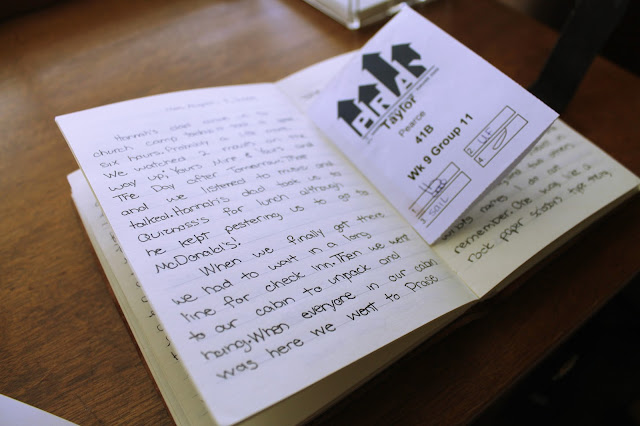 Mon, August
Hannah's dad drove us to
church camp today. It was a good
six hours.
We watched 2 movies on the
way up; Yours, Mine & Yours and
The Day after Tomorrow. Then
and we listened to music and
talked. Hannah's dad took us to
Quiznoss's for lunch although
he kept pestering us to go to
McDonald's!
When we finally got there
we had to wait in a long
line for check inn. Then we were
to our cabin to unpack and
hang. When everyone in our cabin
was here we went to Praise
Taylor
Pearce
41B
Wk 9 Group 11
remember. One was like a
rock paper scissors type thing,